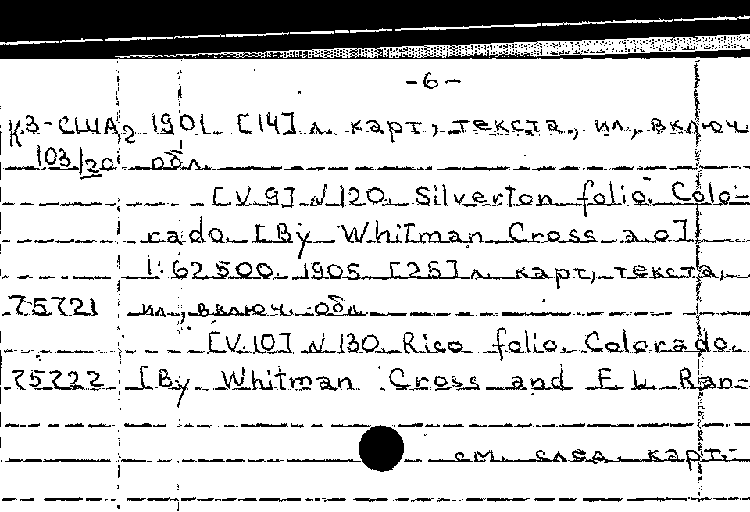 -6-
К3-США2 1901. [14] л. карт, текста, ил, включ.
103/20 обл.
[V. 9] N 120. Silverton folio. Colo-
rado. [By Whitman Cross a.o]
1:62 500. 1905. [25] л. карт, текста,
75721 ил, включ. обл.
[V. 10] N 130. Rico folio. Colorado.
75722 [By Whitman Cross and F. L. Ran-
см. след. карт.